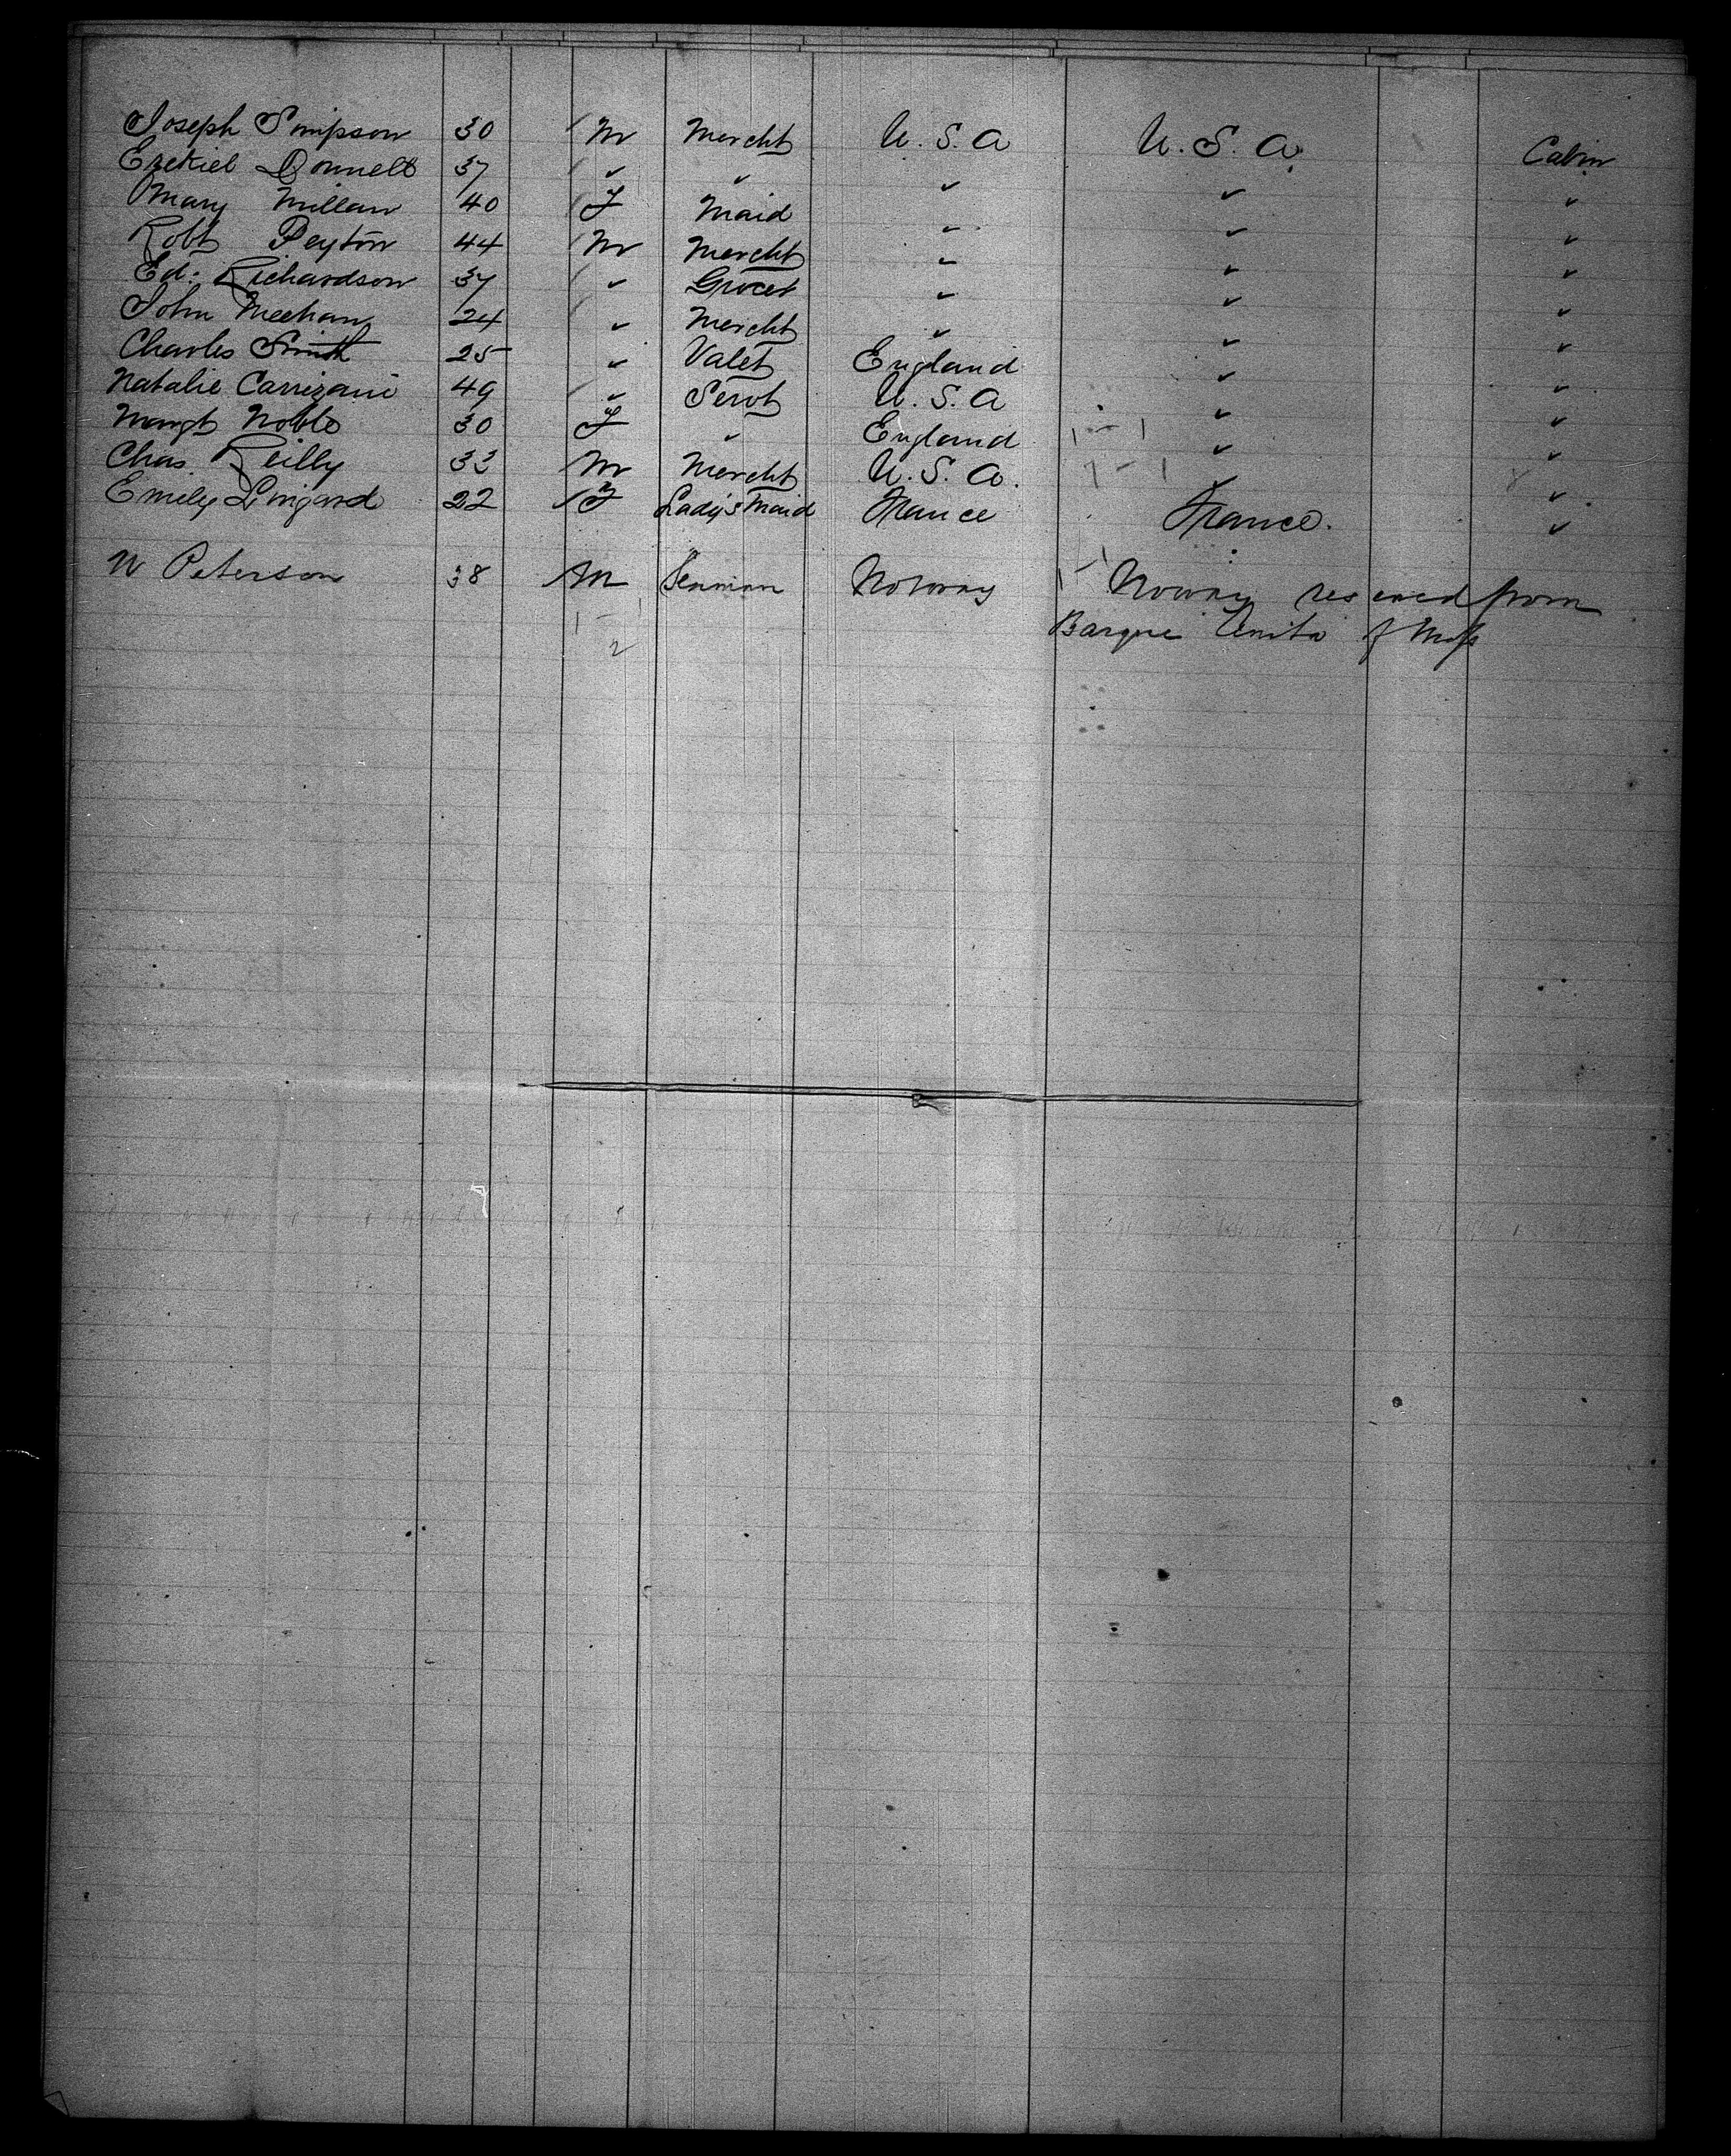 Joseph Simpson 30 M Mercht U. S. A U. S. A. Cabin
Ezekiel Donnell 37 " " " " "
Mary Millan 40 F Maid " " "
Robt Peyton 44 M Mercht " " "
Ed: Richardson 37 " Grocer " " "
John Meehan 24 " Mercht " " "
Charles Smith 25 " Valet England " "
Natalie Carrizani 49 " Servt U. S. A " "
Margt Noble 30 F " England " "
Chas. Reilly 33 M Mercht U. S. A. " "
Emily Lingard 22 F Lady's Maid France France. "
N Peterson 38 M Seaman Norway Norway rescued from
Barque Unita of Moss